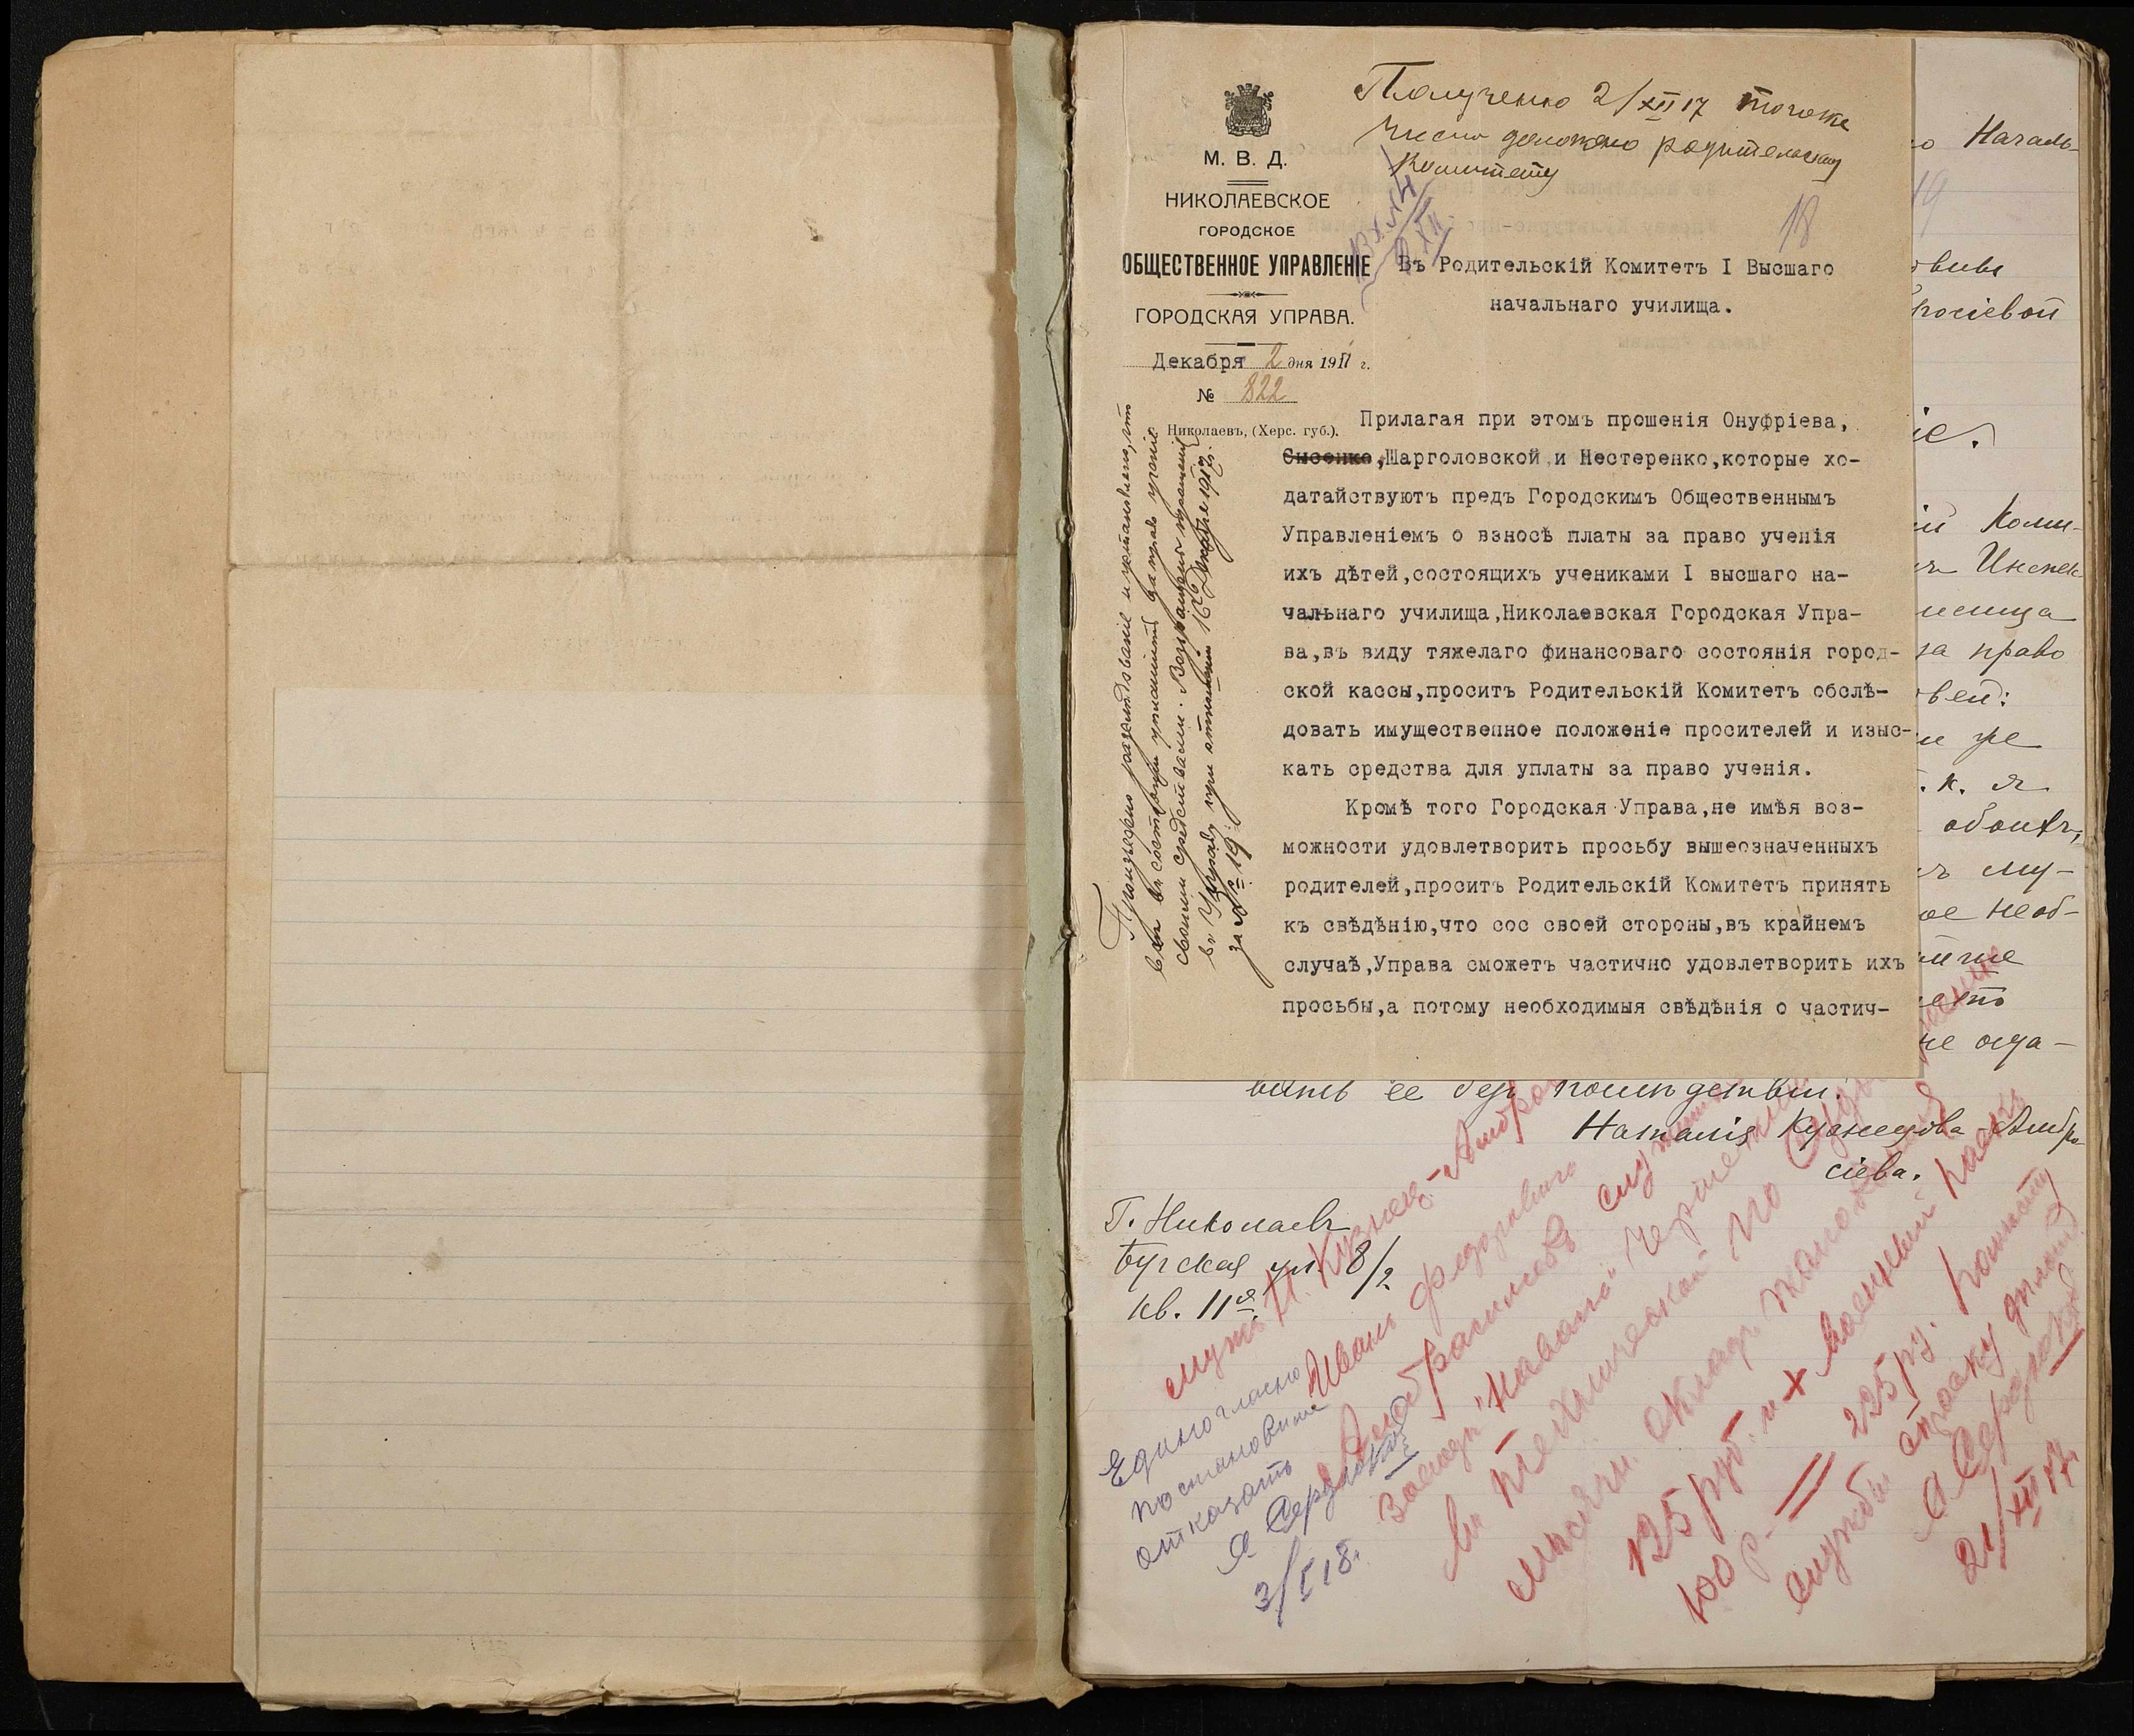 Получено 2/XII 17 тогоже
число доложено родительском
комитету
М. В. Д.
НИКОЛАЕВСКОЕ
ГОРОДСКОЕ
ОБЩЕСТВЕННОЕ УПРАВЛЕНІЕ
ГОРОДСКАЯ УПРАВА.
Декабря 2 дня 1917 г.
№ 822
Николаевъ, (Херс. губ.).
18
Въ Родительскій Комитетъ I Высшаго
начальнаго училища.
Прилагая при этомъ прошенія Онуфріева,
Сысенко,Шарголовской и Нестеренко,которые хо-
датайствуютъ предъ Городскимъ Общественнымъ
Управленіемъ о взносѣ платы за право ученія
ихъ дѣтей,состоящихъ учениками I высшаго на-
чальнаго училища,Николаевская Городская Упра-
ва,въ виду тяжелаго финансоваго состоянія город-
ской кассы,проситъ Родительскій Комитетъ обслѣ-
довать имущественное положеніе просителей и изыс-
кать средства для уплаты за право ученія.
Кромѣ того Городская Управа,не имѣя воз-
можности удовлетворить просьбу вышеозначенныхъ
родителей,проситъ Родительскій Комитетъ принять
къ свѣдѣнію,что сос своей стороны,въ крайнемъ
случаѣ,Управа сможетъ частично удовлетворить ихъ
просьбы,а потому необходимыя свѣдѣнія о частич-
Произведено разслѣдованіе и установлено, что
въ состояніи уплатить за право ученія
своими средствами. Возвращены прошенія
въ Управу при отношеніи 16 Декабря 1917 г.
за № 19.
о Началь-
19
Коми-
Инспек-
за право
т. к. я
обоихъ,
му-
необ-
не оста-
вить ее безъ послѣдствій.
Наталія Кузнецова-Амбро-
сіева.
Г. Николаевъ
Бугская ул. 8/2
кв. 11я.
мужъ Н. Кузнец-Амброс
Иванъ Федоровичъ
Амбросимовъ служитъ
заводѣ "Наваль" чертежн
въ технической по
мѣсячн. окладъ жалованія
125 руб. и + военный паекъ
100 р. = 225 ру. помимо
службы отсроку
А Сердюковъ
21/XII 17.
Единогласно
постановили
отказать
А Сердюковъ
3/I 18.